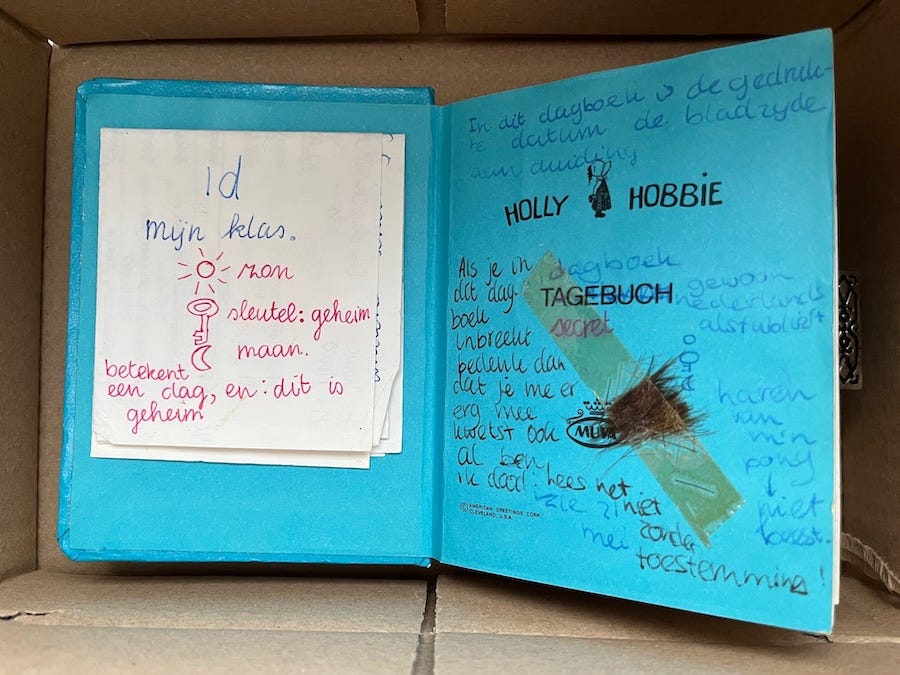 1d
mijn klas.
zon
sleutel: geheim
maan.
betekent
een dag, en: dit is
geheim
In dit dagboek is de gedruk-
te datum de bladzyde
aanduiding
HOLLY HOBBIE
Als je in
dit dag-
boek
inbreekt
bedenk dan
dat je me er
erg mee
kwetst ook
al ben
ik dood: lees het
niet
zonder
toestemming!
dagboek
TAGEBUCH
secret
gewoon
nederlands
alstublieft
haren
van
mijn
pony
niet
© AMERICAN GREETINGS CORP.
CLEVELAND, U.S.A.
zie
mei